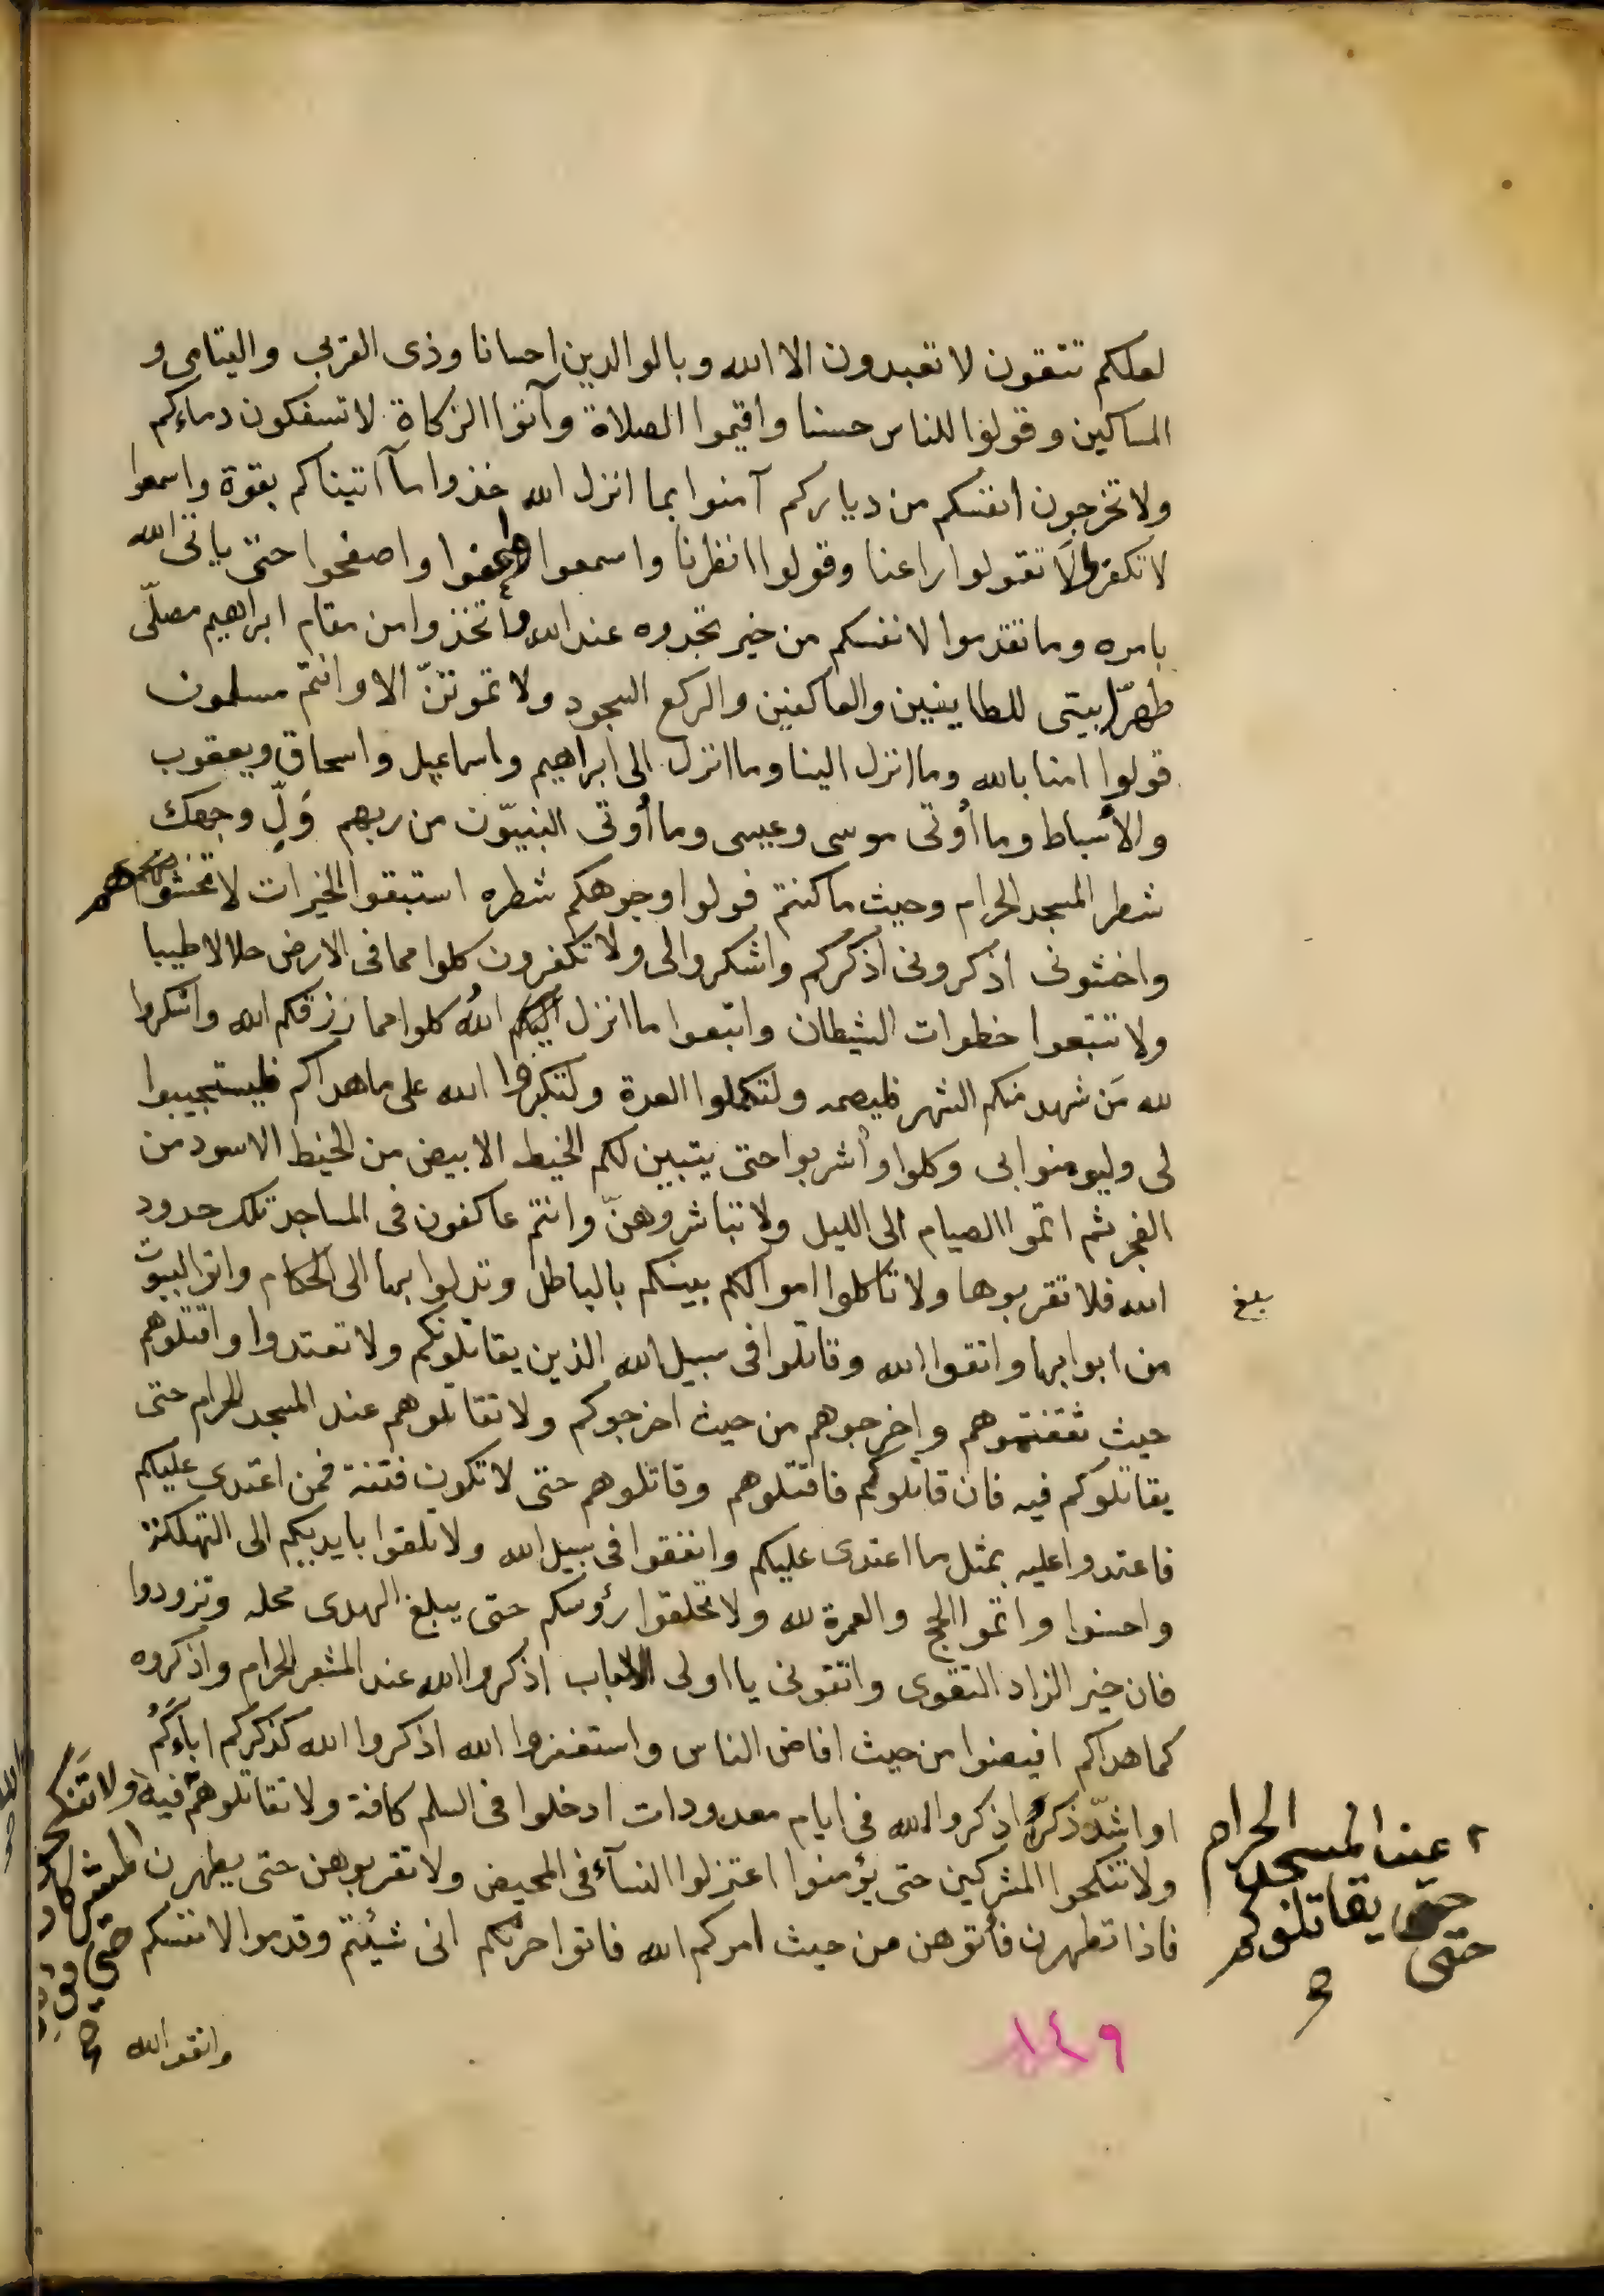 لعلكم تتقون لا تعبدون الا الله وبالوالدين احسانا وذى القربى واليتامى و
المساكين وقولوا للناس حسنا واقيموا الصلاة وآتوا الزكاة لا تسفكون دماءكم
ولا تخرجون انفسكم من دياركم آمنوا بما انزل الله خذوا ما آتيناكم بقوة واسمعوا
لا تكفر لا تقولوا راعنا وقولوا انظرنا واسمعوا فاعفوا واصفحوا حتى ياتى الله
بامره وما تقدموا لانفسكم من خير تجدوه عند الله واتخذوا من مقام ابراهيم مصلّى
طهّرا بيتى للطايفين والعاكفين والركع السجود ولا تموتنّ الا وانتم مسلمون
قولوا امنا بالله وما انزل الينا وما انزل الى ابراهيم واسماعيل واسحاق ويعقوب
والأسباط وما أوتى موسى وعيسى وما أوتى النبيّون من ربهم وَلِّ وجهك
شطر المسجد الحرام وحيث ما كنتم فولوا وجوهكم شطره استبقوا الخيرات لا تخشوهم
واخشونى اذكرونى اذكركم واشكروا لى ولا تكفرون كلوا مما فى الارض حلالا طيبا
ولا تتبعوا خطوات الشيطان واتبعوا ما انزل اليكم الله كلوا مما رزقكم الله واشكروا
لله مَن شهد منكم الشهر فليصمه ولتكملوا العدة ولتكبروا الله على ما هداكم فليستجيبوا
لى وليومنوا بى وكلوا واشربوا حتى يتبين لكم الخيط الابيض من الخيط الاسود من
الفجر ثم اتموا الصيام الى الليل ولا تباشروهنّ وانتم عاكفون فى المساجد تلك حدود
الله فلا تقربوها ولا تاكلوا اموالكم بينكم بالباطل وتدلوا بها الى الحكام واتوا البيوت
بلغ
من ابوابها واتقوا الله وقاتلوا فى سبيل الله الذين يقاتلونكم ولا تعتدوا واقتلوهم
حيث ثقفتموهم واخرجوهم من حيث اخرجوكم ولا تقاتلوهم عند المسجد الحرام حتى
يقاتلوكم فيه فان قاتلوكم فاقتلوهم وقاتلوهم حتى لا تكون فتنة فمن اعتدى عليكم
فاعتدوا عليه بمثل ما اعتدى عليكم وانفقوا فى سبيل الله ولا تلقوا بايديكم الى التهلكة
واحسنوا واتموا الحج والعمرة لله ولا تحلقوا رؤسكم حتى يبلغ الهدى محله وتزودوا
فان خير الزاد التقوى واتقونى يا اولى الالباب اذكروا الله عند المشعر الحرام واذكروه
كما هداكم افيضوا من حيث افاض الناس واستغفروا الله اذكروا الله كذكركم اباءَكُمْ
او اشدّ ذكرا اذكروا الله فى ايام معدودات ادخلوا فى السلم كافة ولا تقاتلوهم فيه
ولا تنكحوا المشركين حتى يؤمنوا اعتزلوا النسآء فى المحيض ولا تقربوهن حتى يطهرن
فاذا تطهرن فأتوهن من حيث امركم الله فاتوا حرثكم انى شئتم وقدموا لانفسكم
عند المسجد الحرام
حتى يقاتلوكم
حتى
ولا تنكحوا
المشركات
حتى
واتقوا الله
١٤٩